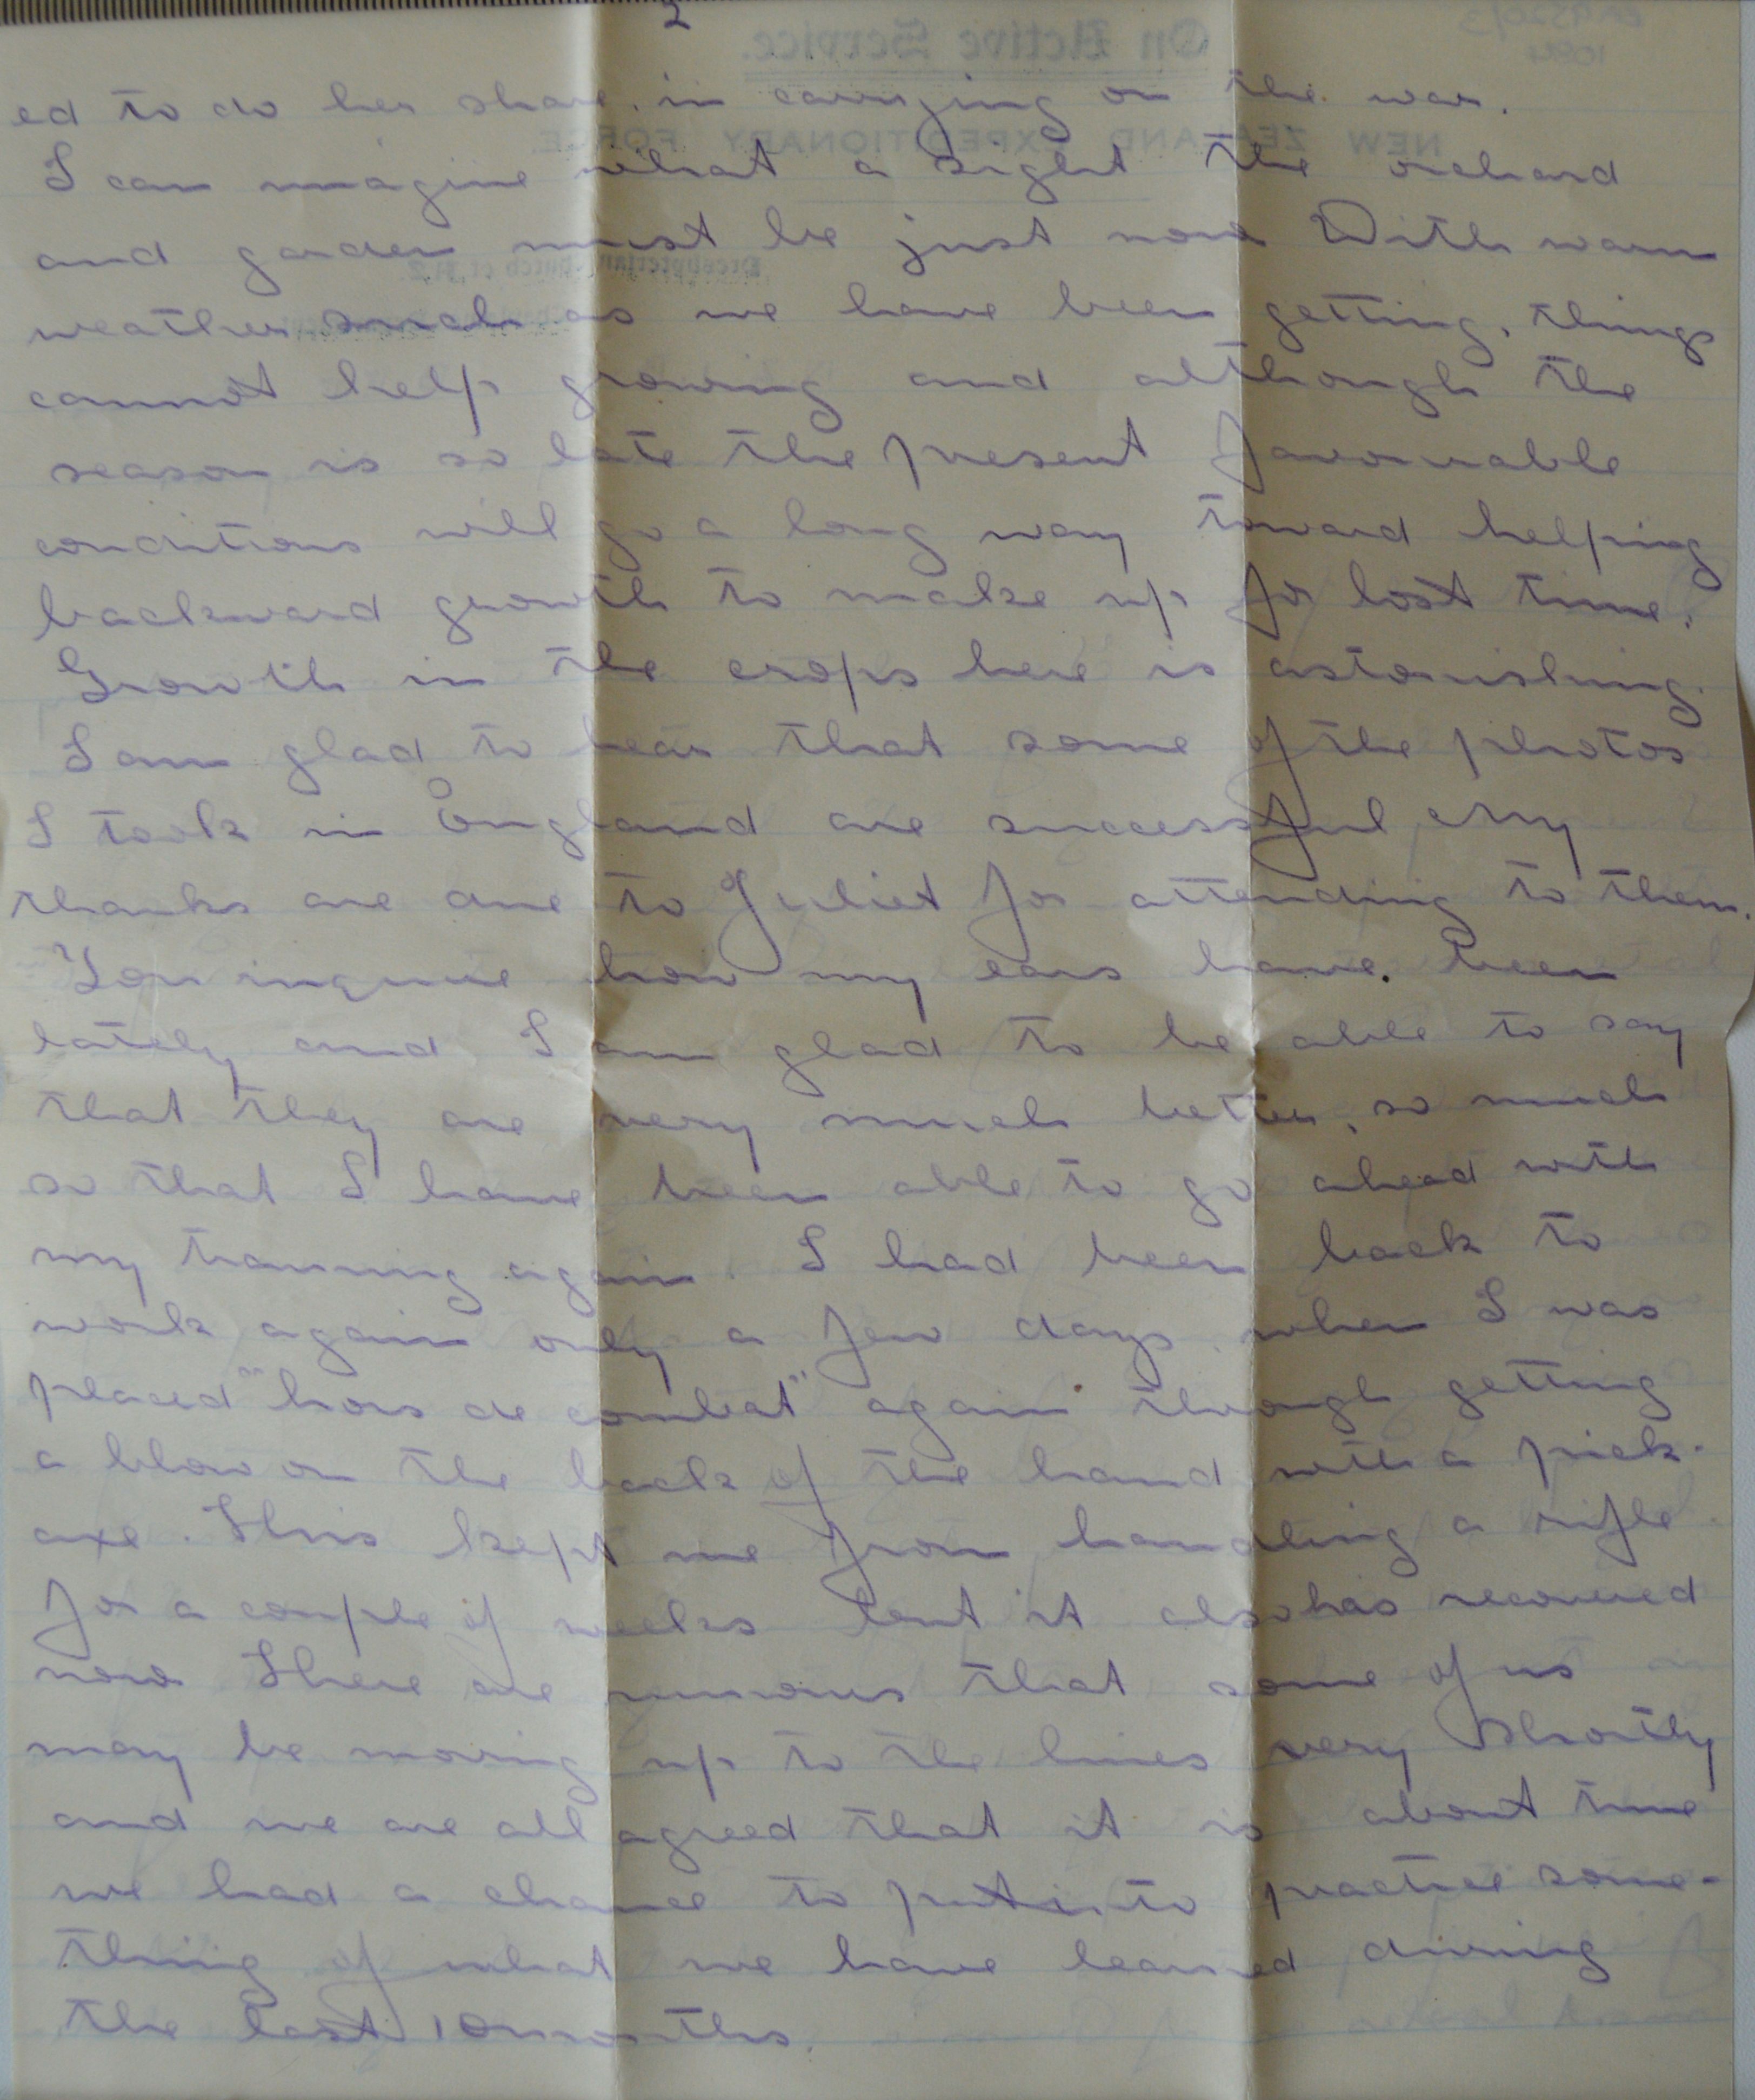 2
ed to do her share in carrying on the war.
I can imagine what a sight the orchard
and garden must be just now With warm
weather such as we have been getting, things
cannot help growing and although the
season is so late the present favourable
conditions will go a long way toward helping
backward growth to make up for lost time.
Growth in the crops here is astonishing.
I am glad to hear that some of the photos
I took in England are successful My
thanks are due to Juliet for attending to them.
You inquire how my ears have been
lately and I am glad to be able to say
that they are very much better, so much
so that I have been able to go ahead with
my training again. I had been back to
work again only a few days when I was
placed "hors de combat" again through getting
a blow on the back of the hand with a pick-
axe. This kept me from handling a rifle
for a couple of weeks but it also has recovered
now There are rumours that some of us
may be moving up to the lines very shortly
and we are all agreed that it is about time
we had a chance to put into practice some-
thing of what we have learned during
the last 10 months.
On Active Service.
NEW ZEALAND EXPEDITIONARY FORCE.
Presbyterian Church of N.Z.